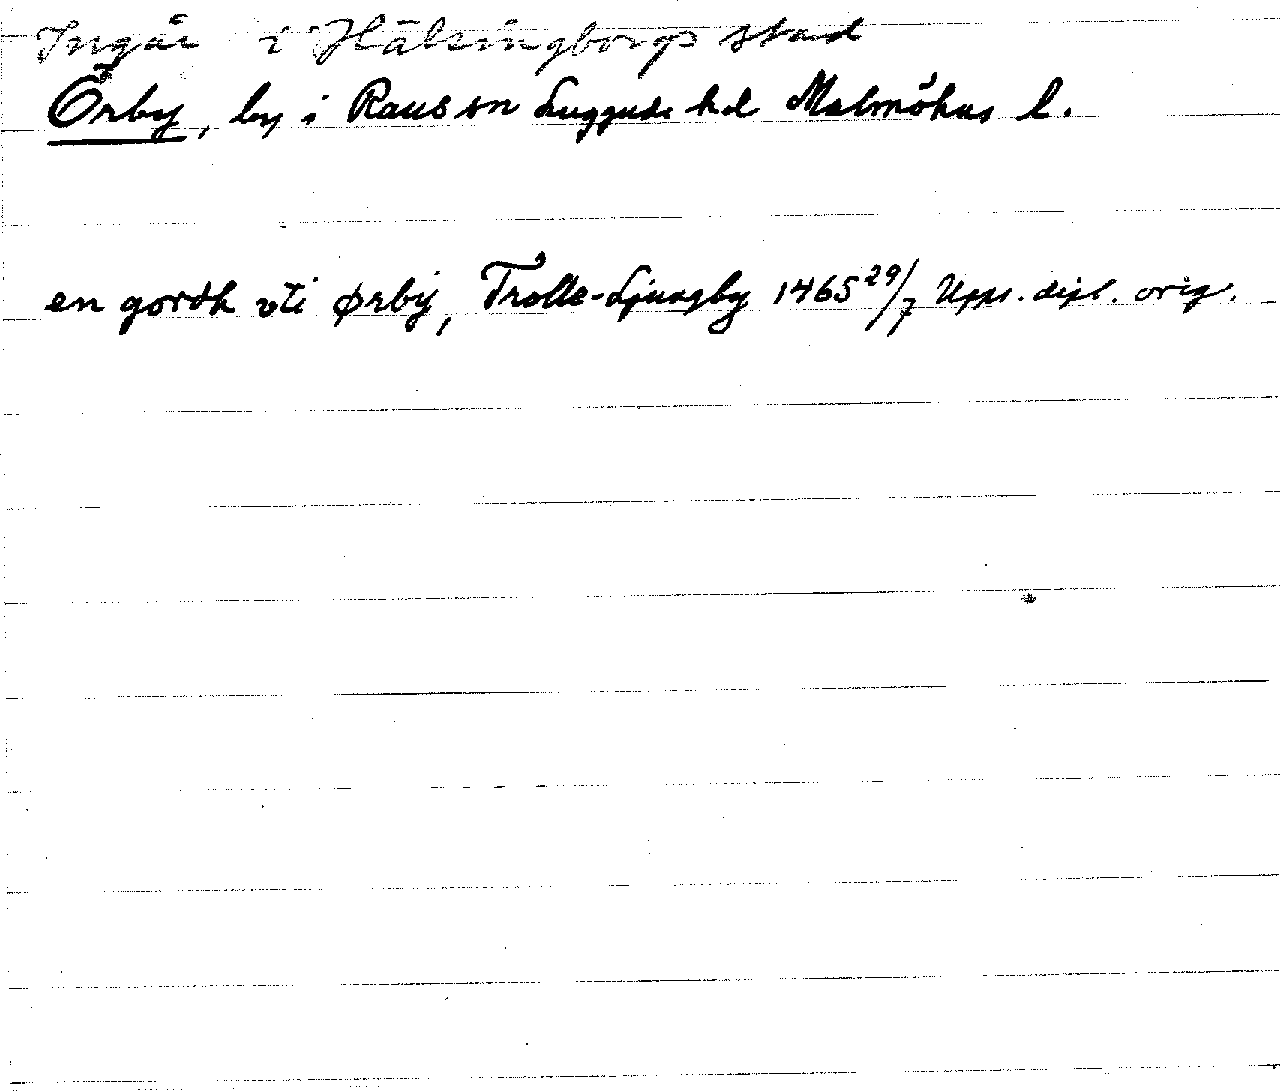 Ingår i Hälsingborgs stad
Örby, by i Raus sn Luggude hd Malmöhus l.
en gordh vti ørbÿ, Trolle-Ljungby 1465 29/7 Upps. dipl. orig.